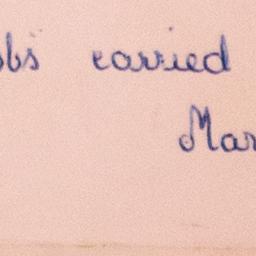 carried
Mar